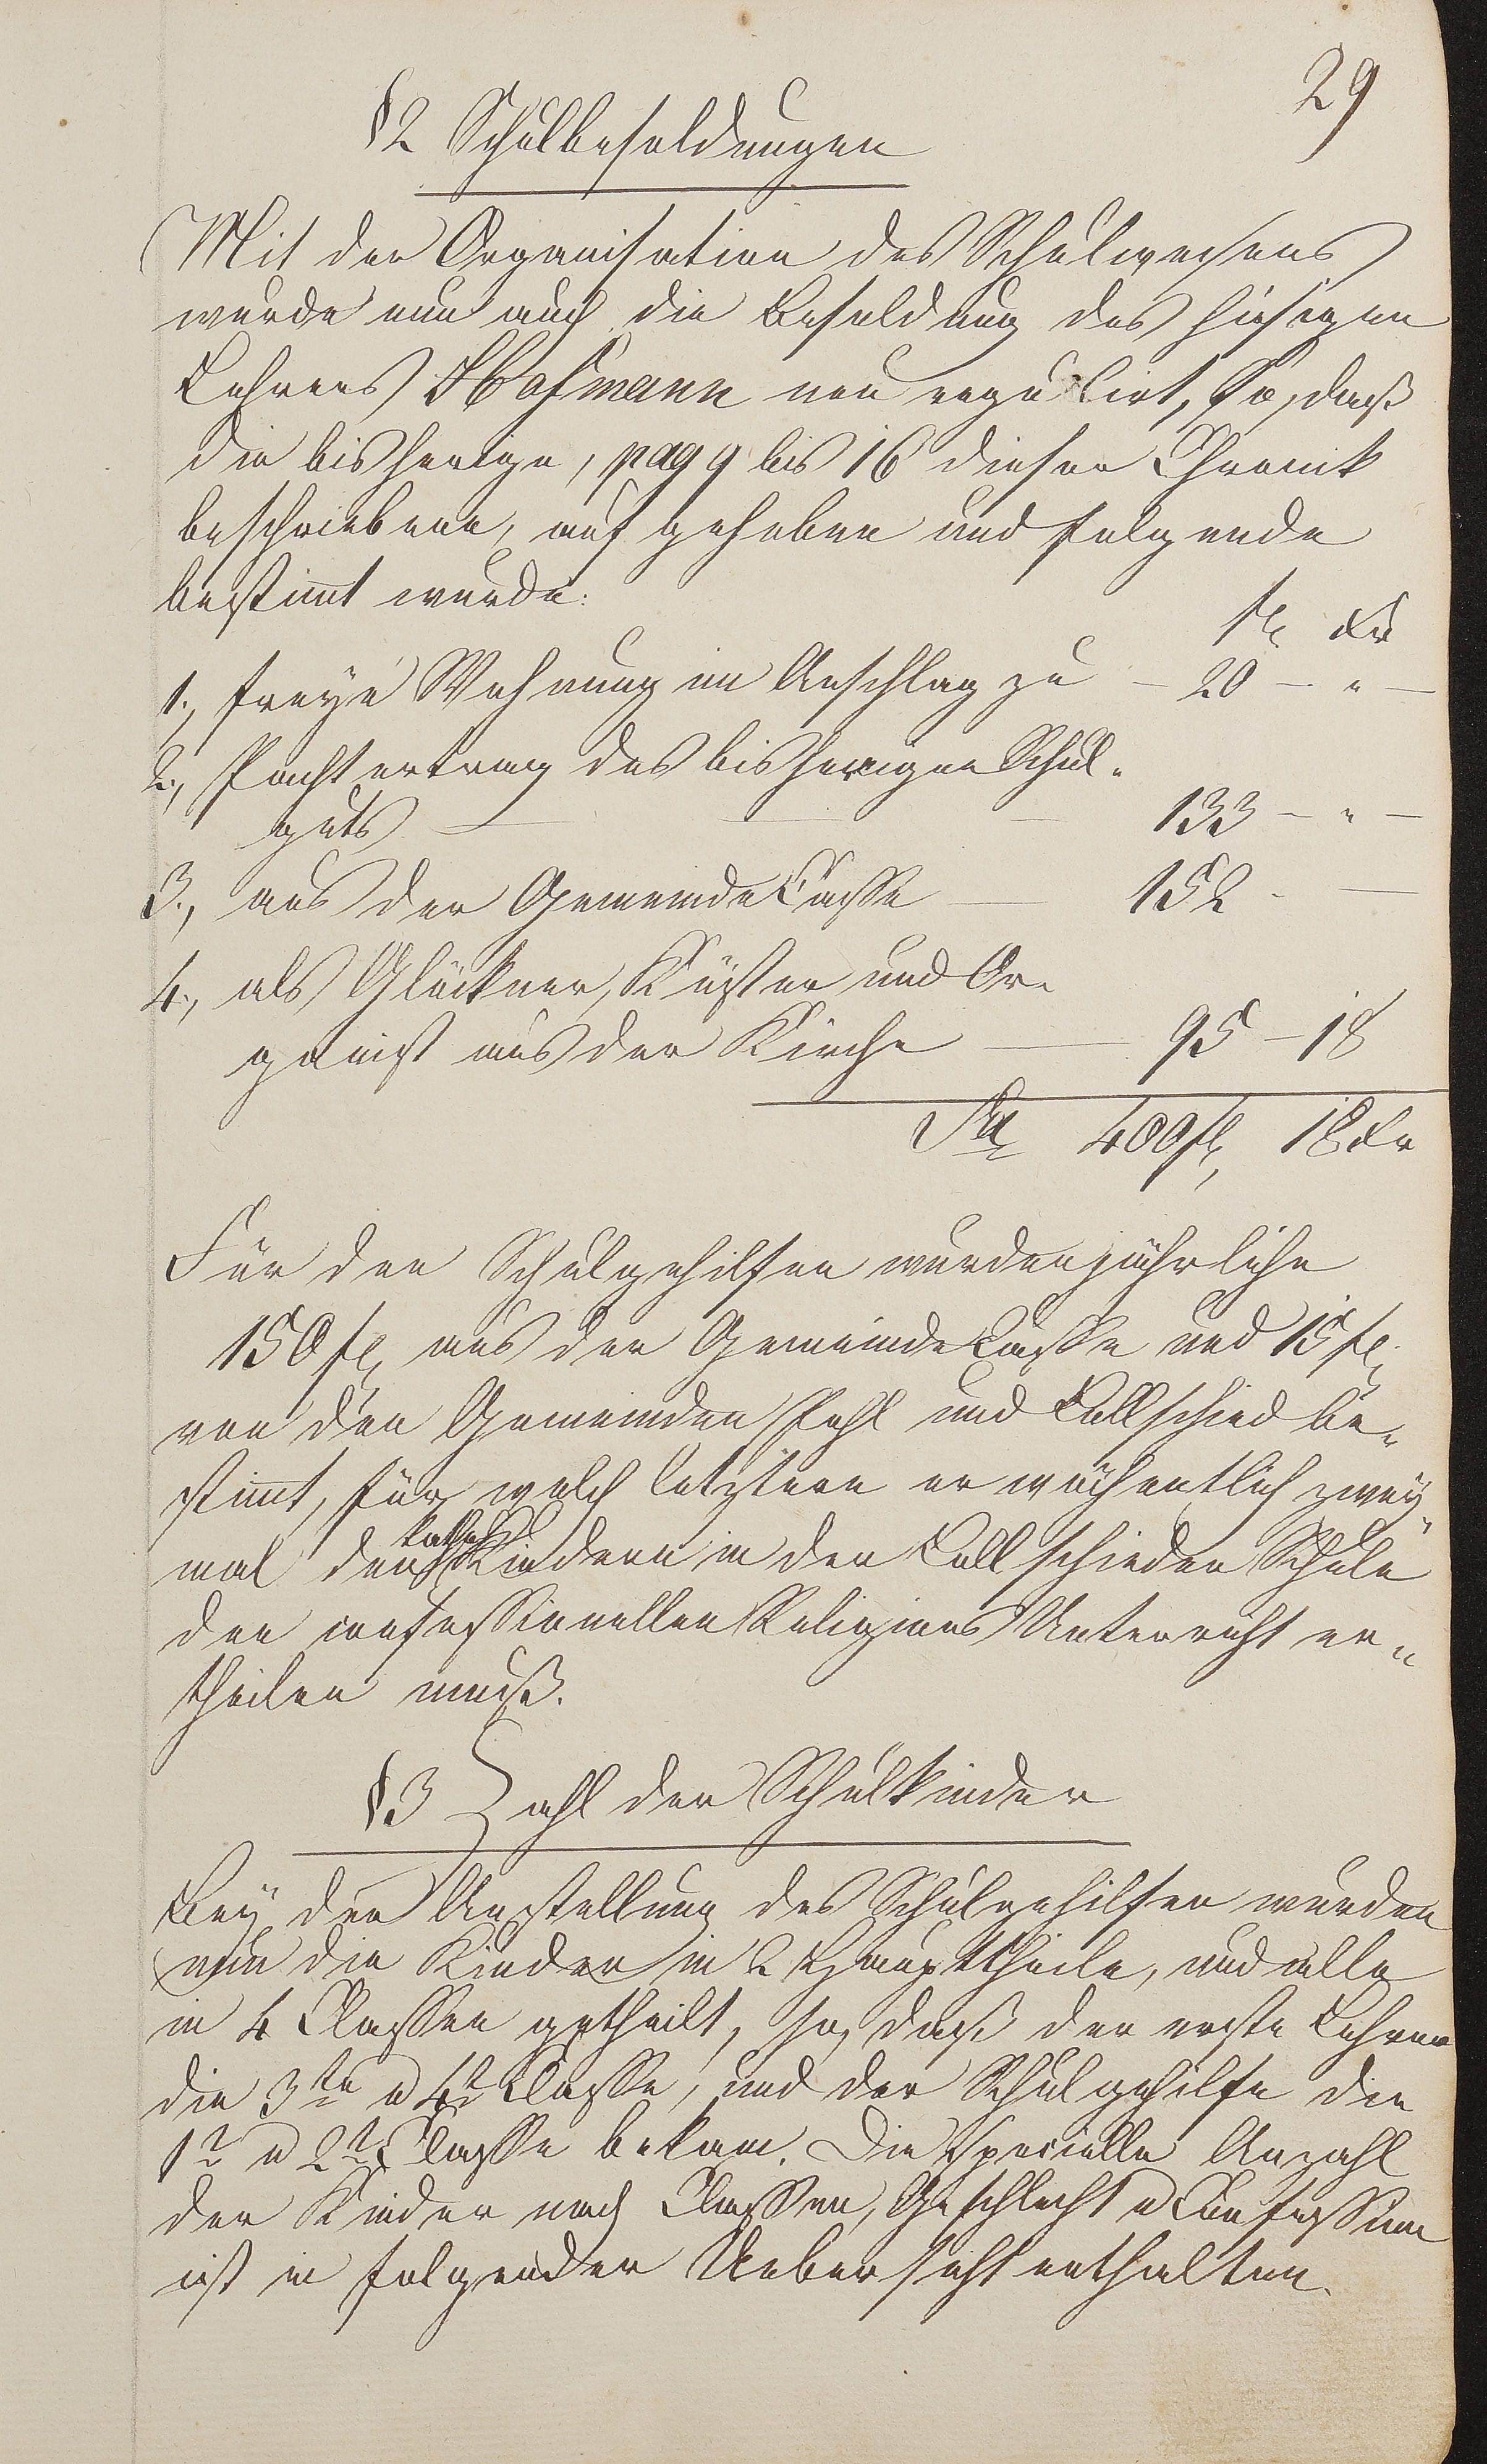 29
§2 Schulbesoldungen
Mit der Organisation des Schulwesens
wurde nun auch die Besoldung des hiesigen
Lehrers Hofmann neu regulirt, so, daß
die bisherige, pag 9 bis 16 dieser Chronik
beschriebene, aufgehoben und folgende
bestimt wurde:
fl Kr
1., freye Wohnung im Anschlag zu — 20 — " —
2., Pachtertrag des bisherigen Schul-
guts — — — 133 — " —
3., aus der GemeindeCasse — 152 - —
4., als Glöckner, Küster und Or-
ganist aus der Kirche — 95 — 18
Sa 400 fl, 18 Kr
Für den Schulgehilfen wurden jährliche
150 fl, aus der GemeindeCasse und 15 fl,
von den Gemeinden Pohl und Lollschied be-
stimt, für welch letztere er wöchentlich zwey-
mal den kathol Kindern in der Lollschieder Schule
den confessionellen Religions Unterricht er-
theilen muß.
§3 Zahl der Schulkinder
Bey der Anstellung des Schulgehilfen wurden
nun die Kinder in 2 Haupttheile, und alle
in 4 Classen getheilt, so, daß der erste Lehrer
die 3te u 4te Classe, und der Schulgehilfe die
1te u 2te Classe bekam. Die specielle Anzahl
der Kinder nach Classen, Geschlecht u Confession
ist in folgender Uebersicht enthalten.